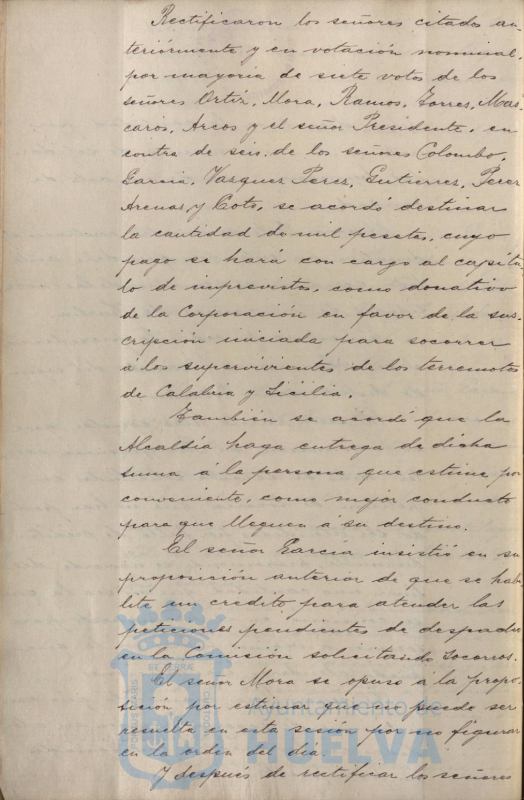 Rectificaron los señores citados an-
teriormente y en votación nominal,
por mayoria de siete votos de los
señores Ortiz, Mora, Ramos, Torres, Mas-
caros, Arcos y el señor Presidente, en
contra de seis, de los señores Colombo,
Garcia, Vazquez Perez, Gutierrez, Perez
Arenas y Coto, se acordó destinar
la cantidad de mil pesetas, cuyo
pago se hará con cargo al capitu-
lo de imprevistos, como donativo
de la Corporación en favor de la sus-
cripción iniciada para socorrer
á los supervivientes de los terremotos
de Calabria y Sicilia.
Tambien se acordó que la
Alcaldía haga entrega de dicha
suma á la persona que estime por
conveniente, como mejor conducto
para que lleguen á su destino.
El señor García insistió en su
proposición anterior de que se habi-
lite un crédito para atender las
peticiones pendientes de despacho
en la Comisión solicitando socorros.
El señor Mora se opuso á la propo-
sición por estimar que no puede ser
resuelta en esta sesión por no figurar
en la orden del dia.
Y después de rectificar los señores
Ayuntamiento de
HUELVA